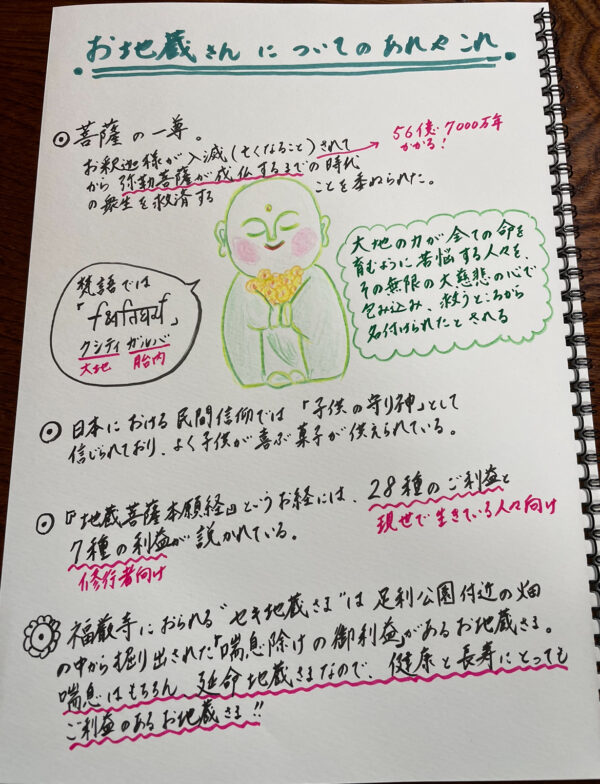 お地蔵さんについてのあれやこれ
菩薩の一尊。
お釈迦様が入滅(亡くなること)されて
から弥勒菩薩が成仏するまでの時代
の衆生を救済することを委ねられた。
56億7000万年
かかる!
大地の力が全ての命を
育むように苦悩する人々を、
その無限の大慈悲の心で
包み込み、救うところから
名付けられたとされる
梵語では
「क्षितिघर्भ」
クシティ ガルバ
大地 胎内
日本における民間信仰では「子供の守り神」として
信じられており、よく子供が喜ぶ菓子が供えられている。
『地蔵菩薩本願経』というお経には、28種のご利益と
現世で生きている人々向け
7種の利益が説かれている。
修行者向け
福厳寺におられる"セキ地蔵さま"は足利公園付近の畑
の中から掘り出された「喘息除けの御利益」があるお地蔵さま。
喘息はもちろん、延命地蔵さまなので、健康と長寿にとっても
ご利益のあるお地蔵さま!!